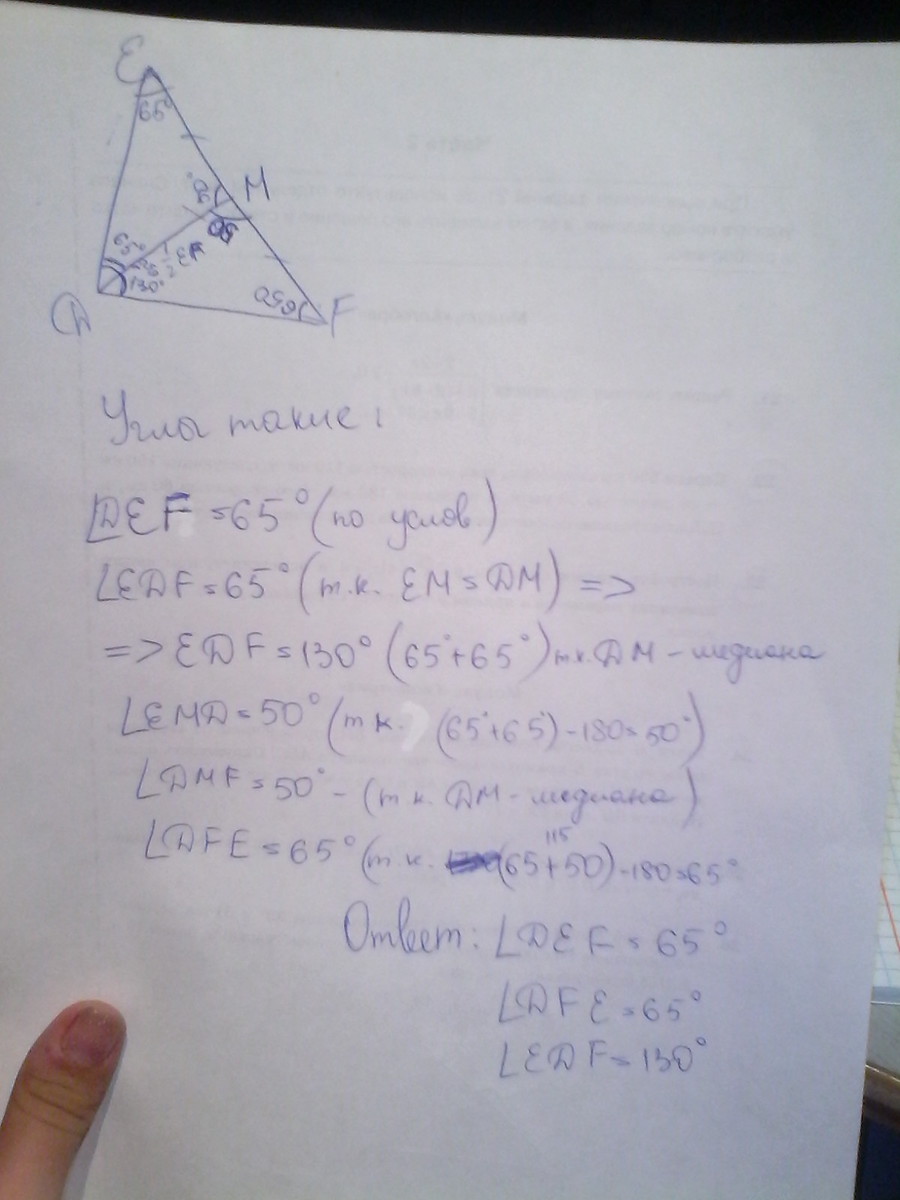 E
65°
M
50°
50
65°
½EF
130°
65°
D
F
Углы такие:
∠DEF = 65° (по услов)
∠EDF = 65° (т.к. EM = DM) =>
=> EDF = 130° (65°+65°) т.к. DM - медиана
∠EMD = 50° (т к. (65°+65°) - 180 = 50°)
∠DMF = 50° - (т.к. DM - медиана)
115
∠DFE = 65° (т к. (65+50) - 180 = 65°
Ответ: ∠DEF = 65°
∠DFE = 65°
∠EDF = 130°